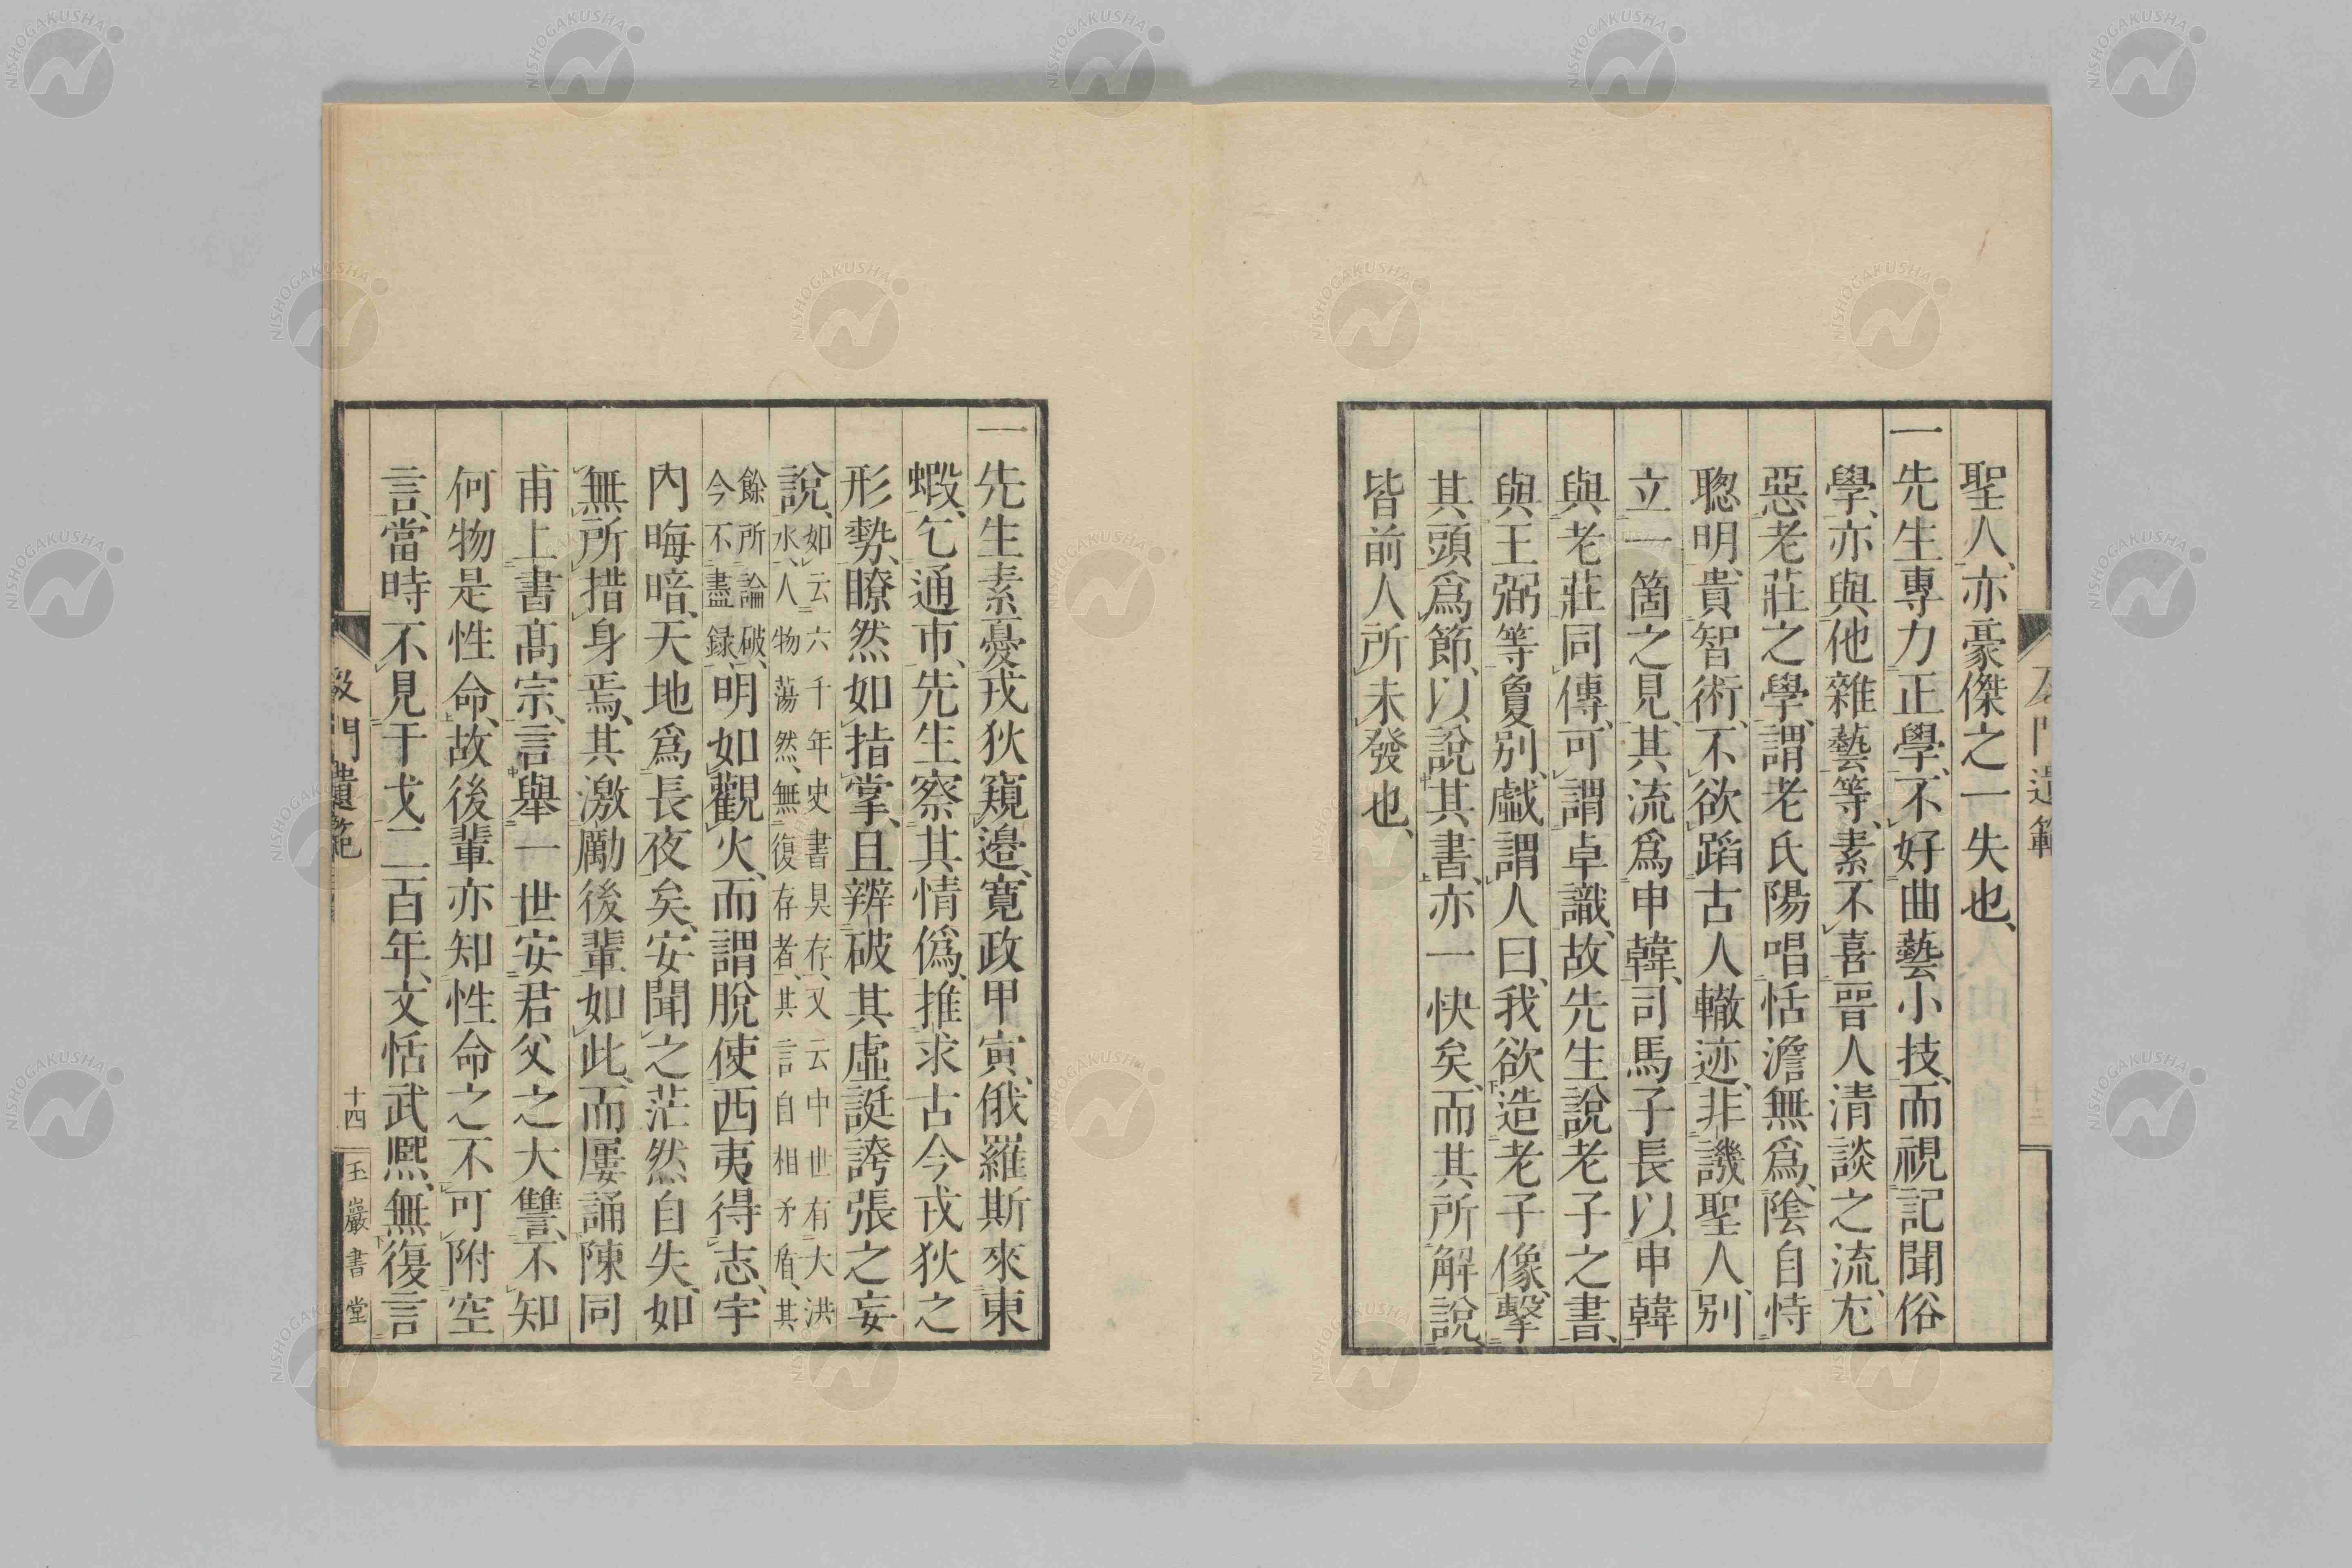 聖人、亦豪傑之一失也、
一先生專力正學、不好曲藝小技、而視記聞俗
學、亦與他雜藝等、素不喜晉人清談之流、尤
惡老莊之學、謂老氏陽唱恬澹無爲、陰自恃
聰明、貴智術、不欲蹈古人轍迹、非譏聖人、別
立一箇之見、其流爲申韓、司馬子長以申韓
與老莊同傳、可謂卓識、故先生說老子之書、
與王弼等夐別、戲謂人曰、我欲造老子像、擊
其頭爲節、以說其書、亦一快矣、而其所解說、
皆前人所未發也、
門遺範
一先生素憂戎狄窺邊、寬政甲寅、俄羅斯來東
蝦、乞通市、先生察其情僞、推求古今戎狄之
形勢、瞭然如指掌、且辨破其虛誕誇張之妄
說、如云六千年史書具存、又云中世有大洪
水、人物蕩然、無復存者、其言自相矛盾、其
餘所論破、
今不盡錄、明如觀火、而謂脫使西夷得志、宇
內晦暗、天地爲長夜矣、安聞之茫然自失、如
無所措身焉、其激勵後輩如此、而屢誦陳同
甫上書高宗、言舉一世安君父之大讐、不知
何物是性命、故後輩亦知性命之不可附空
言、當時不見于戈二百年、文恬武熈、無復言
及門遺範
十四
玉巖書堂
NISHOGAKUSHA